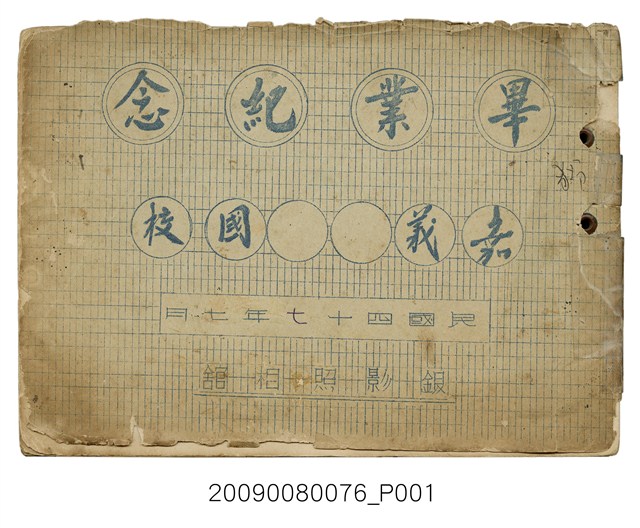 畢業紀念
嘉義〇〇國校
民國四十七年七月
銀影照相舘
20090080076_P001